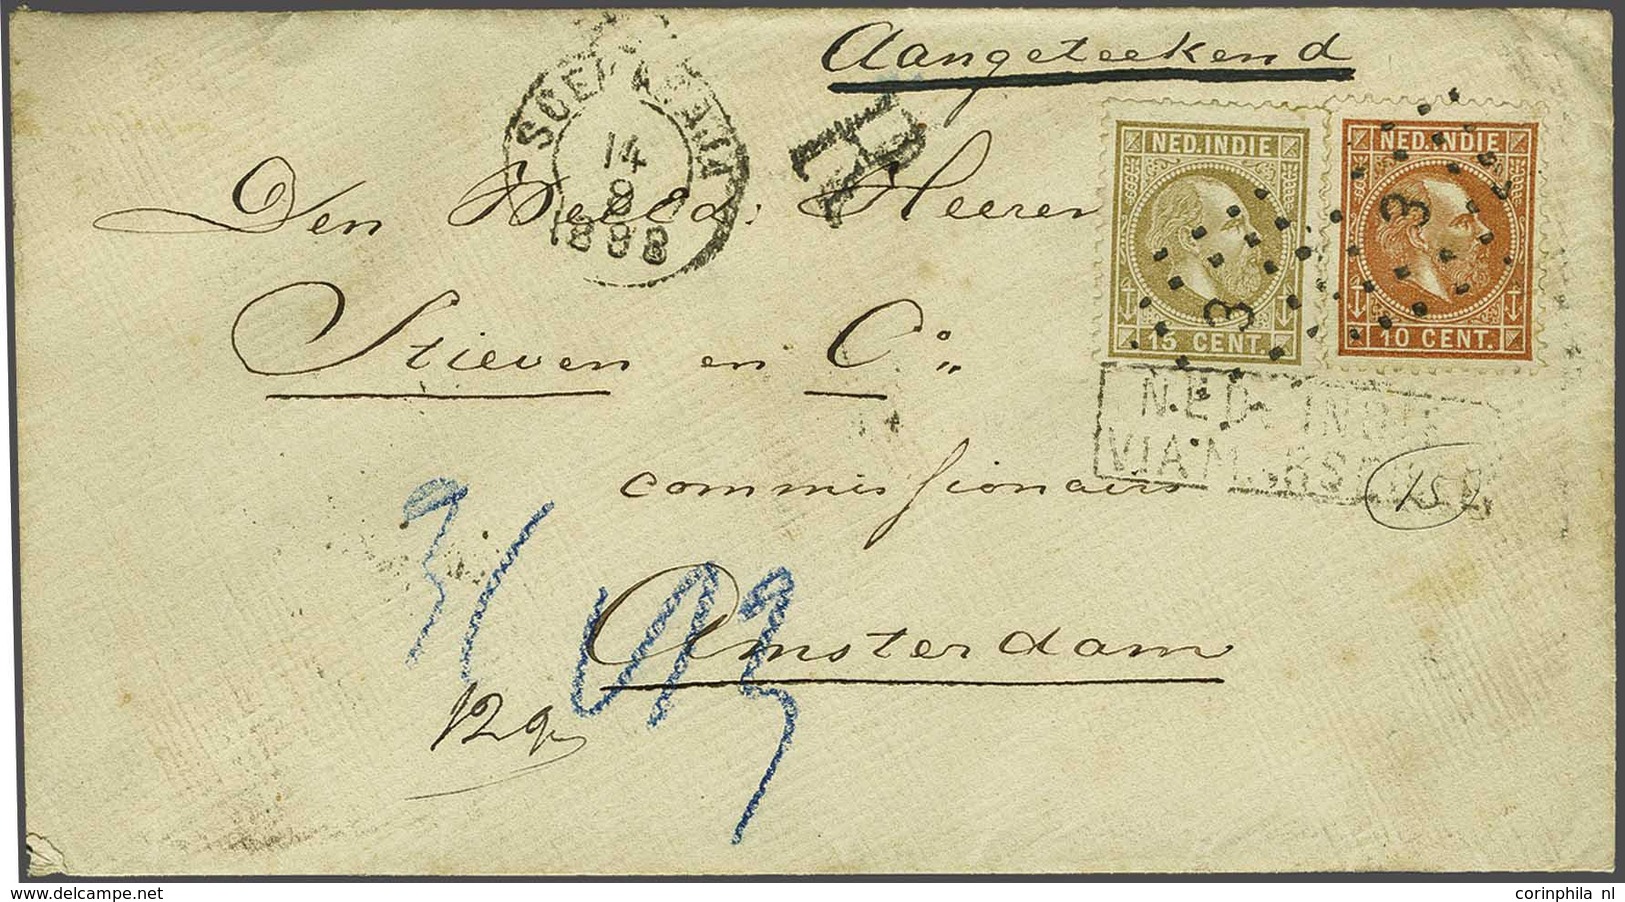 Aangeteekend
SOERABAIJA
14
8
1888
R
NED. INDIE
NED. INDIE
3
3
15 CENT.
10 CENT.
Den Heeren
Stieven en Co
NED. INDIE
VIA MARSEILLE
commissionairs
152
3/
Amsterdam
12 gr
www.delcampe.net
corinphila nl